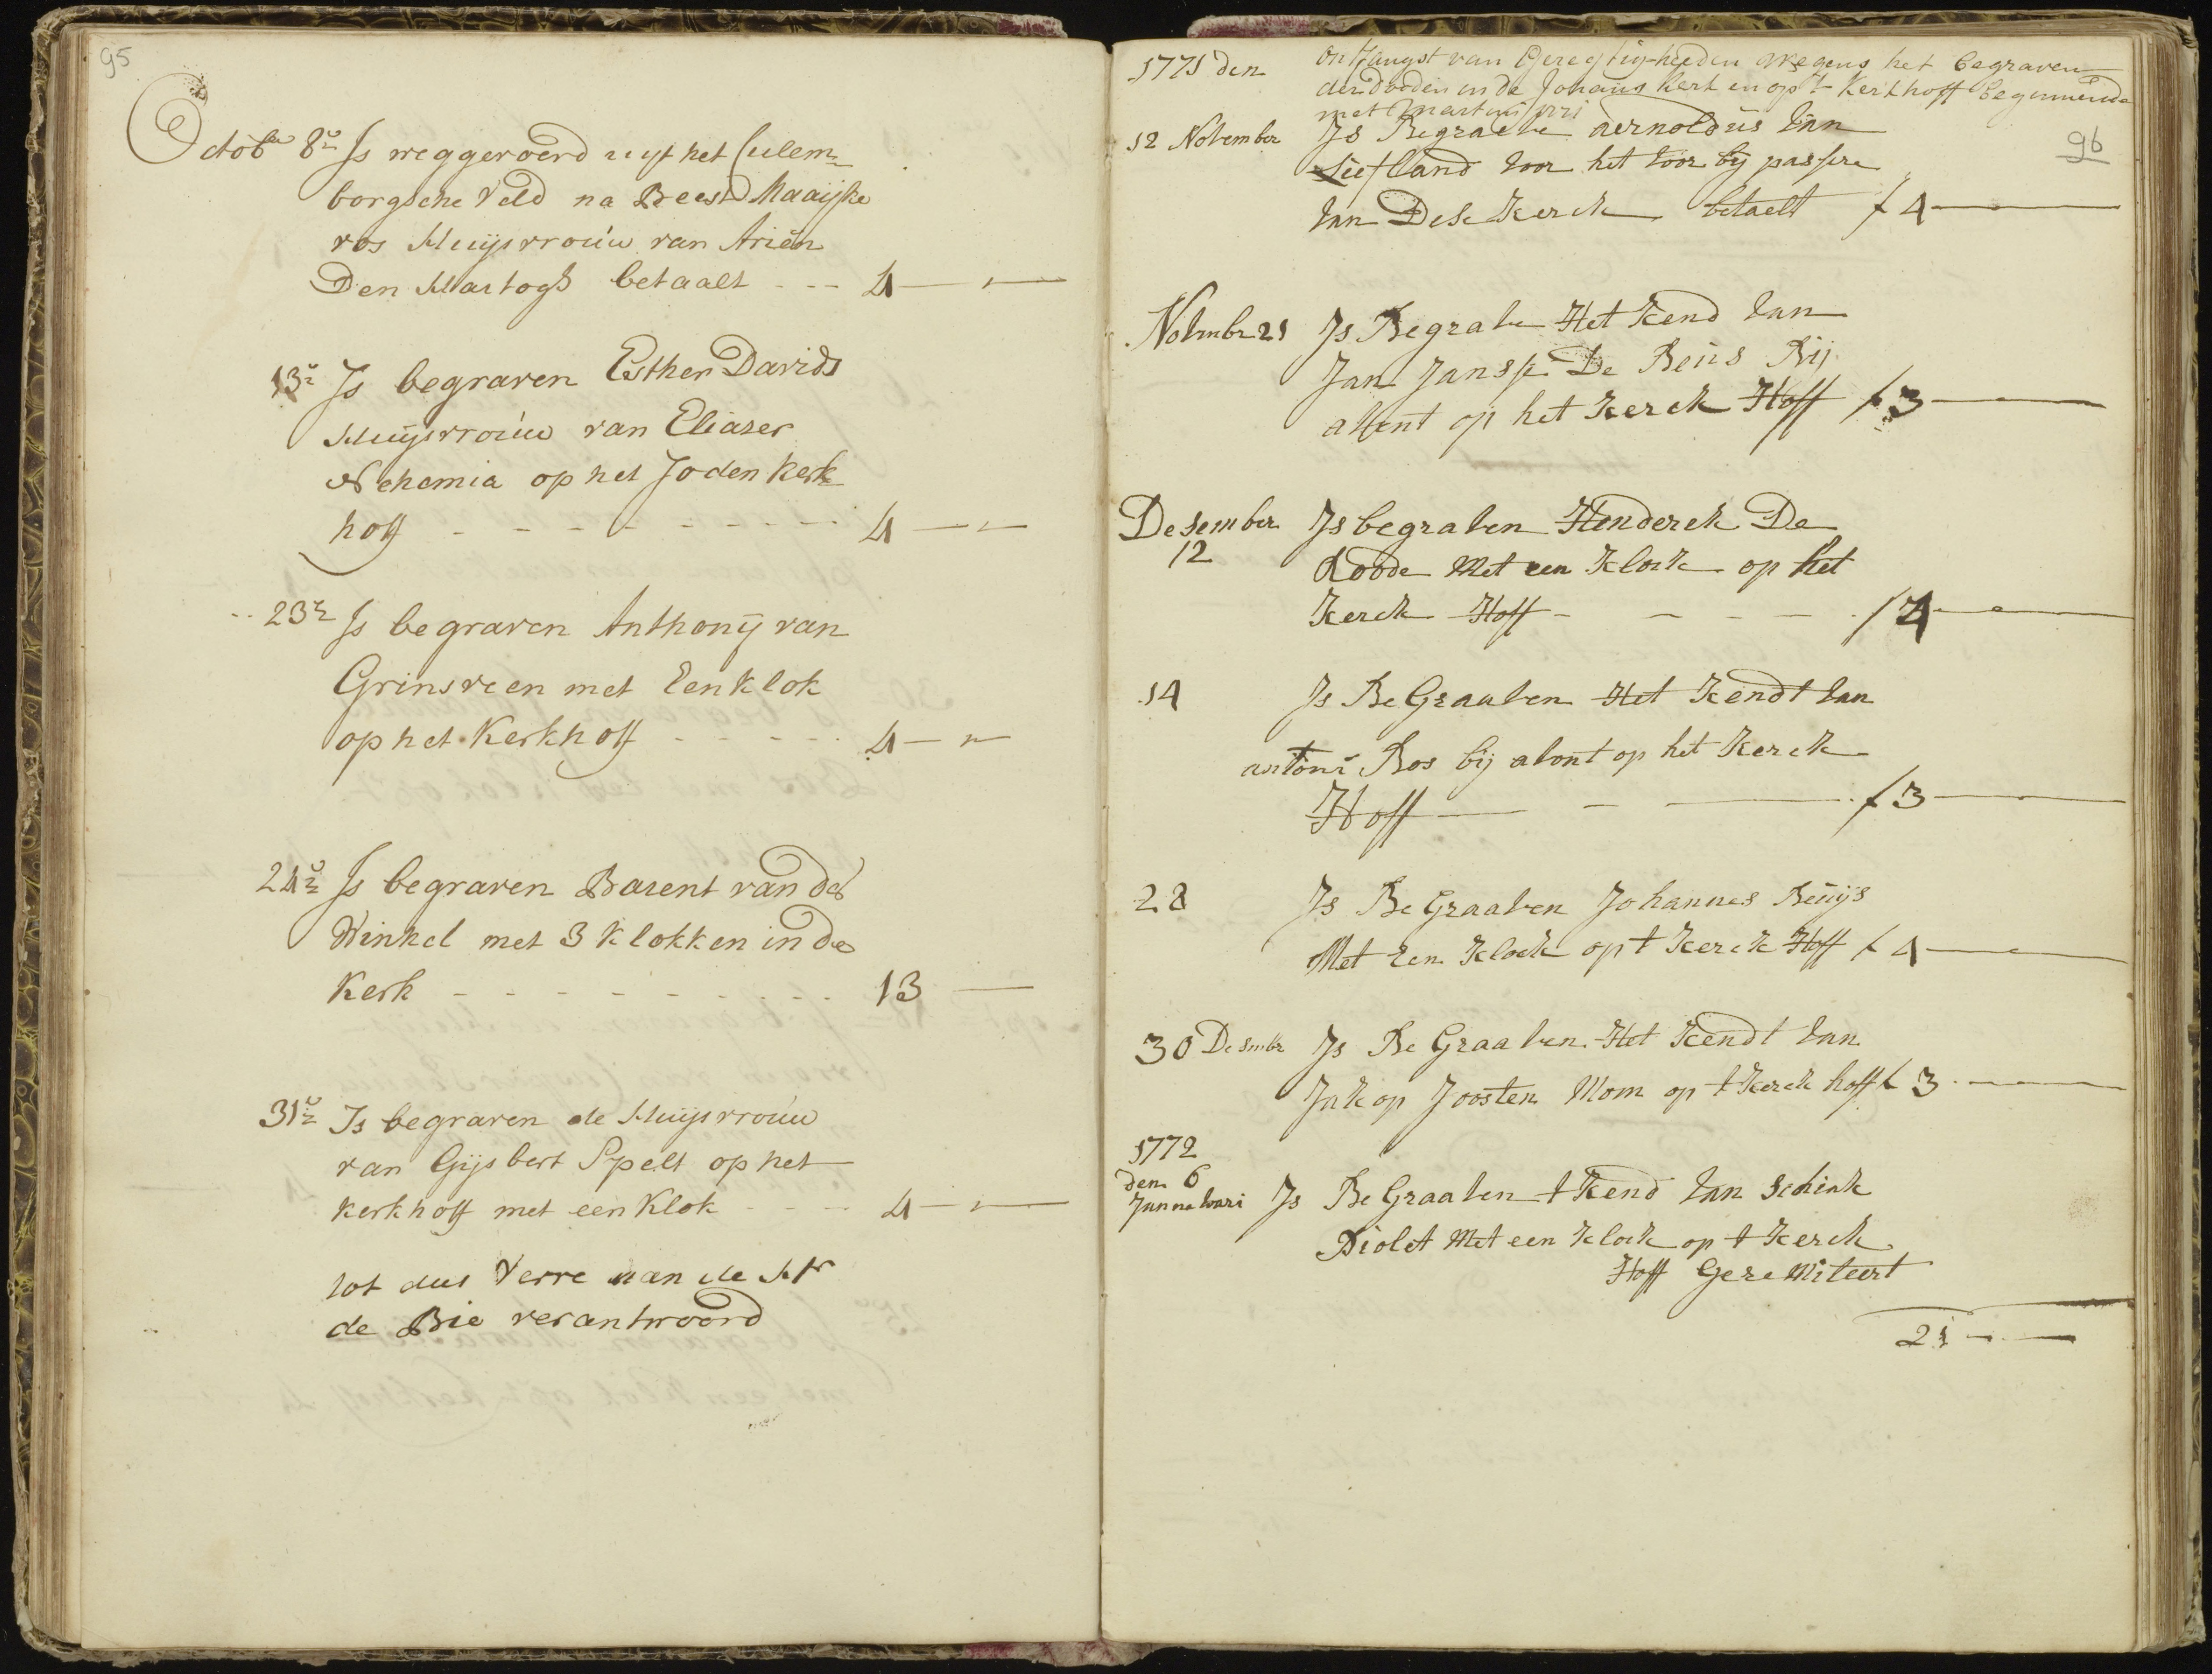 95
Octobr 8en Is weggevoerd uyt het Culem=
borgsche Veld na Beest Maaijke
vos Huijsvrouw van Ariën
Den Hartogh betaalt - - - 4 — " —
13en Is begraven Esther Davids
Huijsvrouw van Eliazer
Nehemia op het Joden Kerk
hoff - - - - - - - - - 4 — " —
23en Is begraven Anthonij van
Grinsveen met Een klok
op het Kerkhoff - - - - - 4 — " —
24en Is begraven Barent van de
Winkel met 3 klokken in de
Kerk - - - - - - - - - 13 —
31en Is begraven de Huijsvrouw
van Gijsbert Spelt op het
Kerkhoff met een Klok - - - 4 — " —
tot dus Verre aan de Hr
de Bie verantwoord
1771 den
ontfangst van Geregtigheeden wegens het begraven
der dooden in de Johans kerk en op 't Kerkhoff beginnende
met Martini 1771
96
12 November Is Begrave aernoldus van
Liefland voor het voor bij passere
van Dese Kerck betaelt f 4 —
Novmbr 21 Is Begrave Het Kend van
Jan Jansse De Beus Bij
avent op het Kerck Hoff f 3 —
Desember
12
Is begraven Henderck De
Roode Met een Klock op het
Kerck Hoff - - - - f 4 —
14 Is Be Graaven Het Kendt van
antoni Bos bij avont op het Kerck
Hoff — - — f 3 —
28 Is Be Graaven Johannes Buijs
Met Een Klock op t Kerck Hoff f 4 —
30 Desmbr Is Be Graaven Het Kendt van
Jakop Joosten Mom op t Kerck hoff f 3 —
1772
den 6
Jannewari Is Be Graaven t Kend van Schink
Diolet Met een Klock op t Kerck
Hoff Geremiteert
21 — —